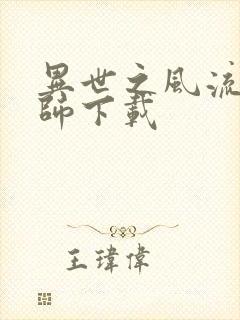 異世之風流
師下載
王瑋偉